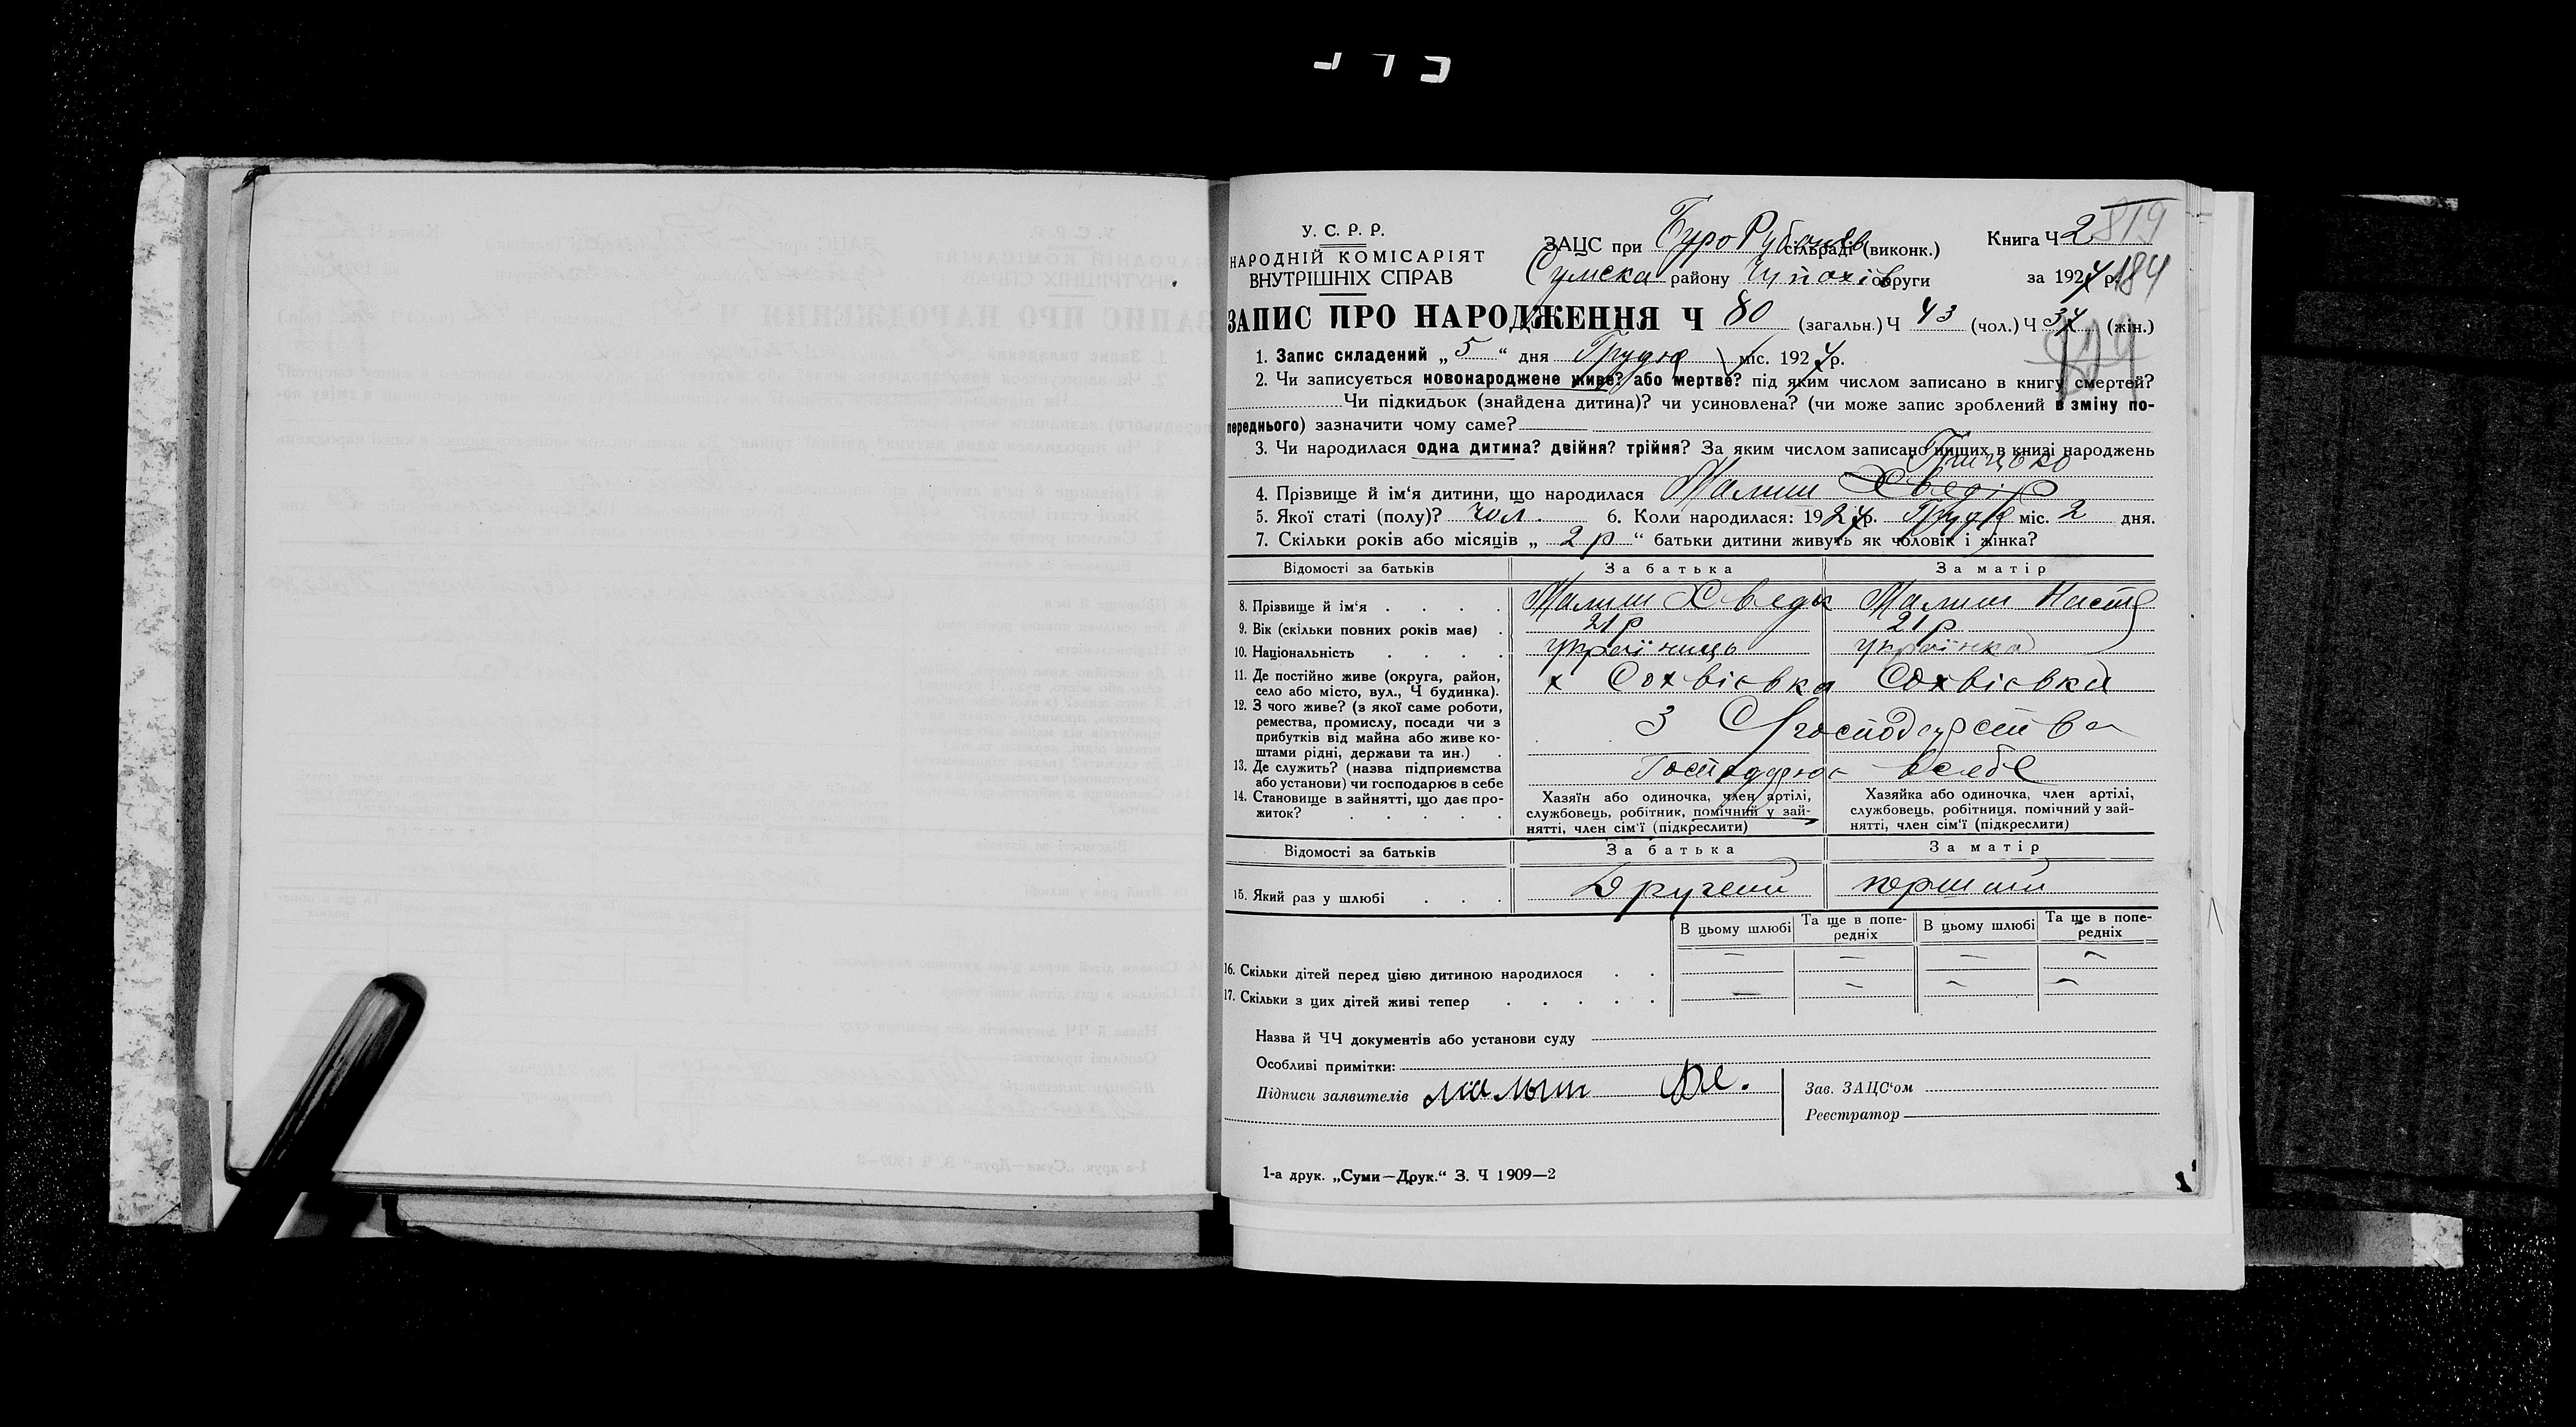 У. С. Р. Р.
НАРОДНІЙ КОМІСАРІЯТ
ВНУТРІШНІХ СПРАВ
ЗАЦС при Буро Рубанів сільраді (виконк.)
Сумска району округи
Книга Ч 2 819
за 1924 р. 184
ЗАПИС ПРО НАРОДЖЕННЯ Ч 80 (загальн.) Ч 43 (чол.) Ч 37 (жін.)
1. Запис складений „ 5 “ дня Грудня міс. 1924 р.
2. Чи записується новонароджене живе? або мертве? під яким числом записано в книгу смертей?
Чи підкидьок (знайдена дитина)? чи усиновлена? (чи може запис зроблений в зміну по-
переднього) зазначити чому саме?
3. Чи народилася одна дитина? двійня? трійня? За яким числом записано инших в книзі народжень
Грицько
4. Прізвище й ім‘я дитини, що народилася Малиш Хведір
5. Якої статі (полу)? чол. 6. Коли народилася: 1924 р. Грудня міс. 2 дня.
7. Скільки років або місяців „ 2 р “ батьки дитини живуть як чоловік і жінка?
Відомості за батьків За батька За матір
8. Прізвище й ім‘я Малиш Хведір Малиш Настя
9. Вік (скільки повних років має) 21 р 21 р
10. Національність українець українка
11. Де постійно живе (округа, район,
село або місто, вул., Ч будинка). х Сохвієвка Сохвієвка
12. З чого живе? (з якої саме роботи,
ремества, промислу, посади чи з
прибутків від майна або живе ко-
штами рідні, держави та ин.) З господарства
13. Де служить? (назва підприємства
або установи) чи господарює в себе Господарює в себе
14. Становище в зайнятті, що дає про-
житок?
Хазяїн або одиночка, член артілі,
службовець, робітник, помічний у зай-
нятті, член сім‘ї (підкреслити)
Хазяйка або одиночка, член артілі,
службовець, робітниця, помічний у зай-
нятті, член сім‘ї (підкреслити)
Відомості за батьків За батька За матір
15. Який раз у шлюбі Другий перший
В цьому шлюбі Та ще в попе-
редніх В цьому шлюбі Та ще в попе-
редніх
16. Скільки дітей перед цією дитиною народилося — — — —
17. Скільки з цих дітей живі тепер — — — —
Назва й ЧЧ документів або установи суду
Особливі примітки:
Підписи заявителів малыш
Зав. ЗАЦС‘ом
Реєстратор
1-а друк. „Суми—Друк.“ З. Ч 1909—2